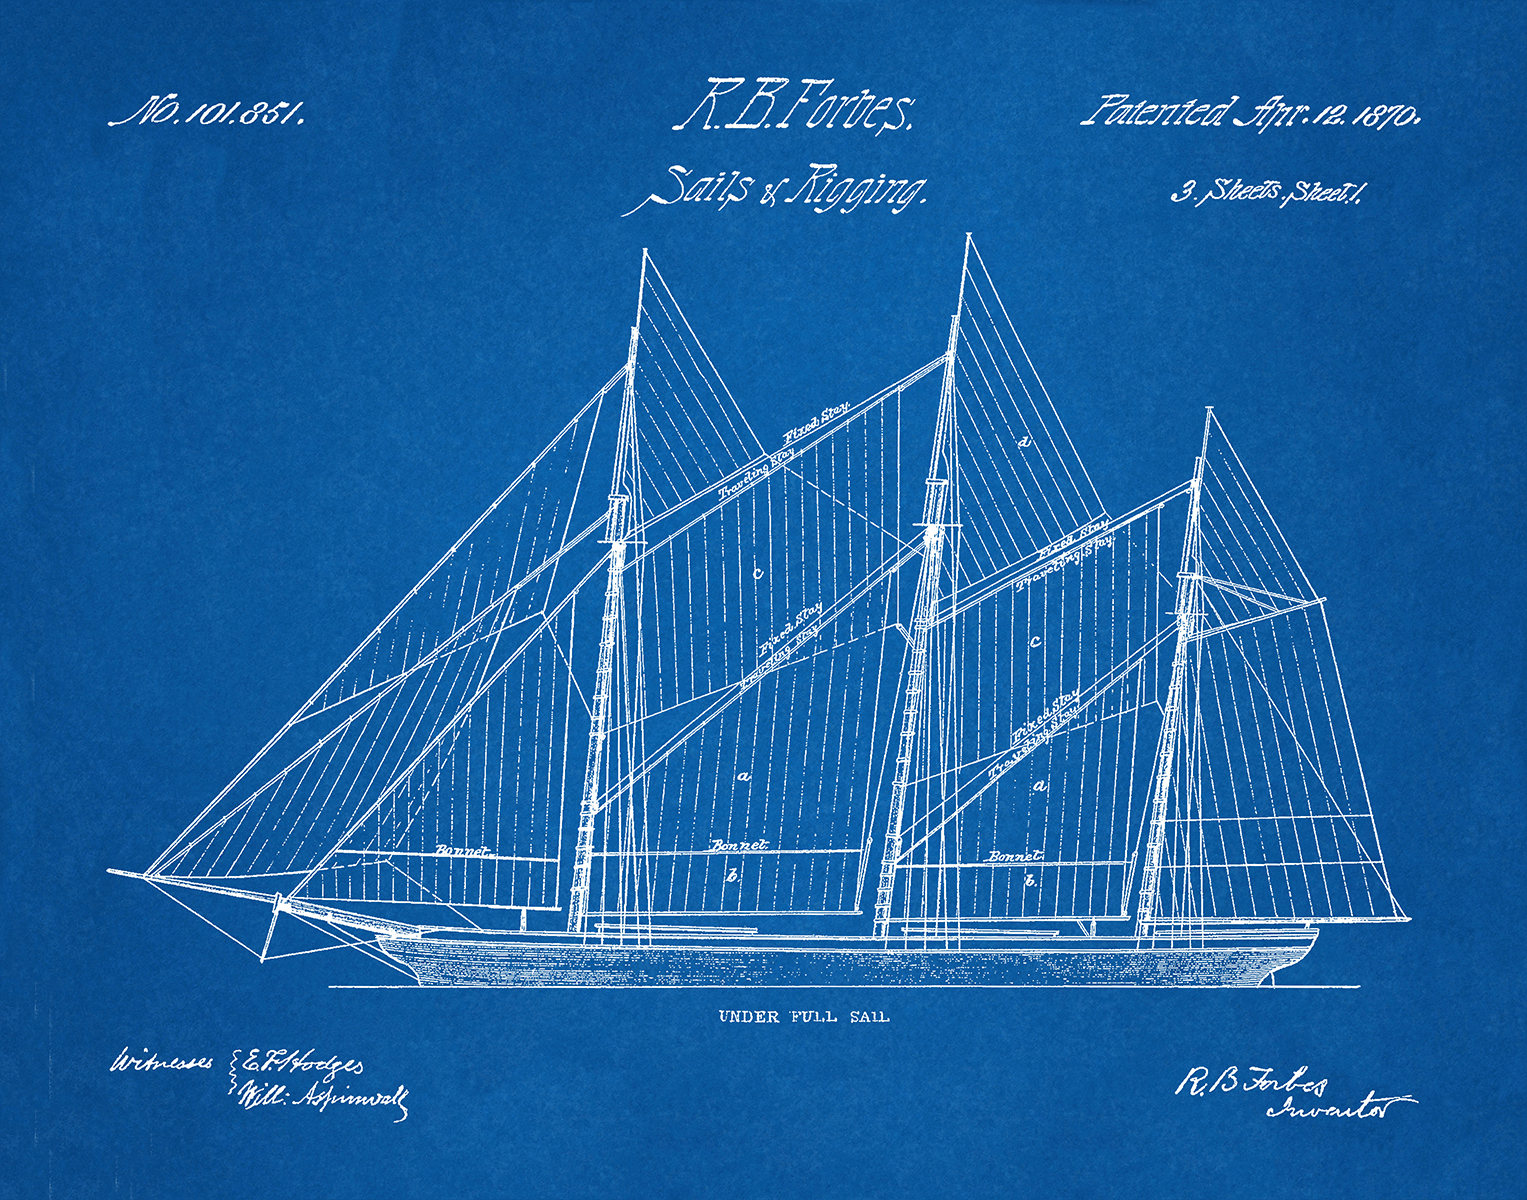 No. 101.851.
R. B. Forbes.
Patented Apr. 12. 1870.
Sails & Rigging.
3. Sheets. Sheet. 1.
Fixed Stay.
Traveling Stay
d
Fixed Stay
Traveling Stay.
c
Fixed Stay
Traveling Stay
c
Fixed Stay
Traveling Stay
a
a
Bonnet.
Bonnet.
Bonnet.
b.
b.
UNDER FULL SAIL
Witnesses { E. F. Hodges
Will: Aspinwall
R. B Forbes
Inventor